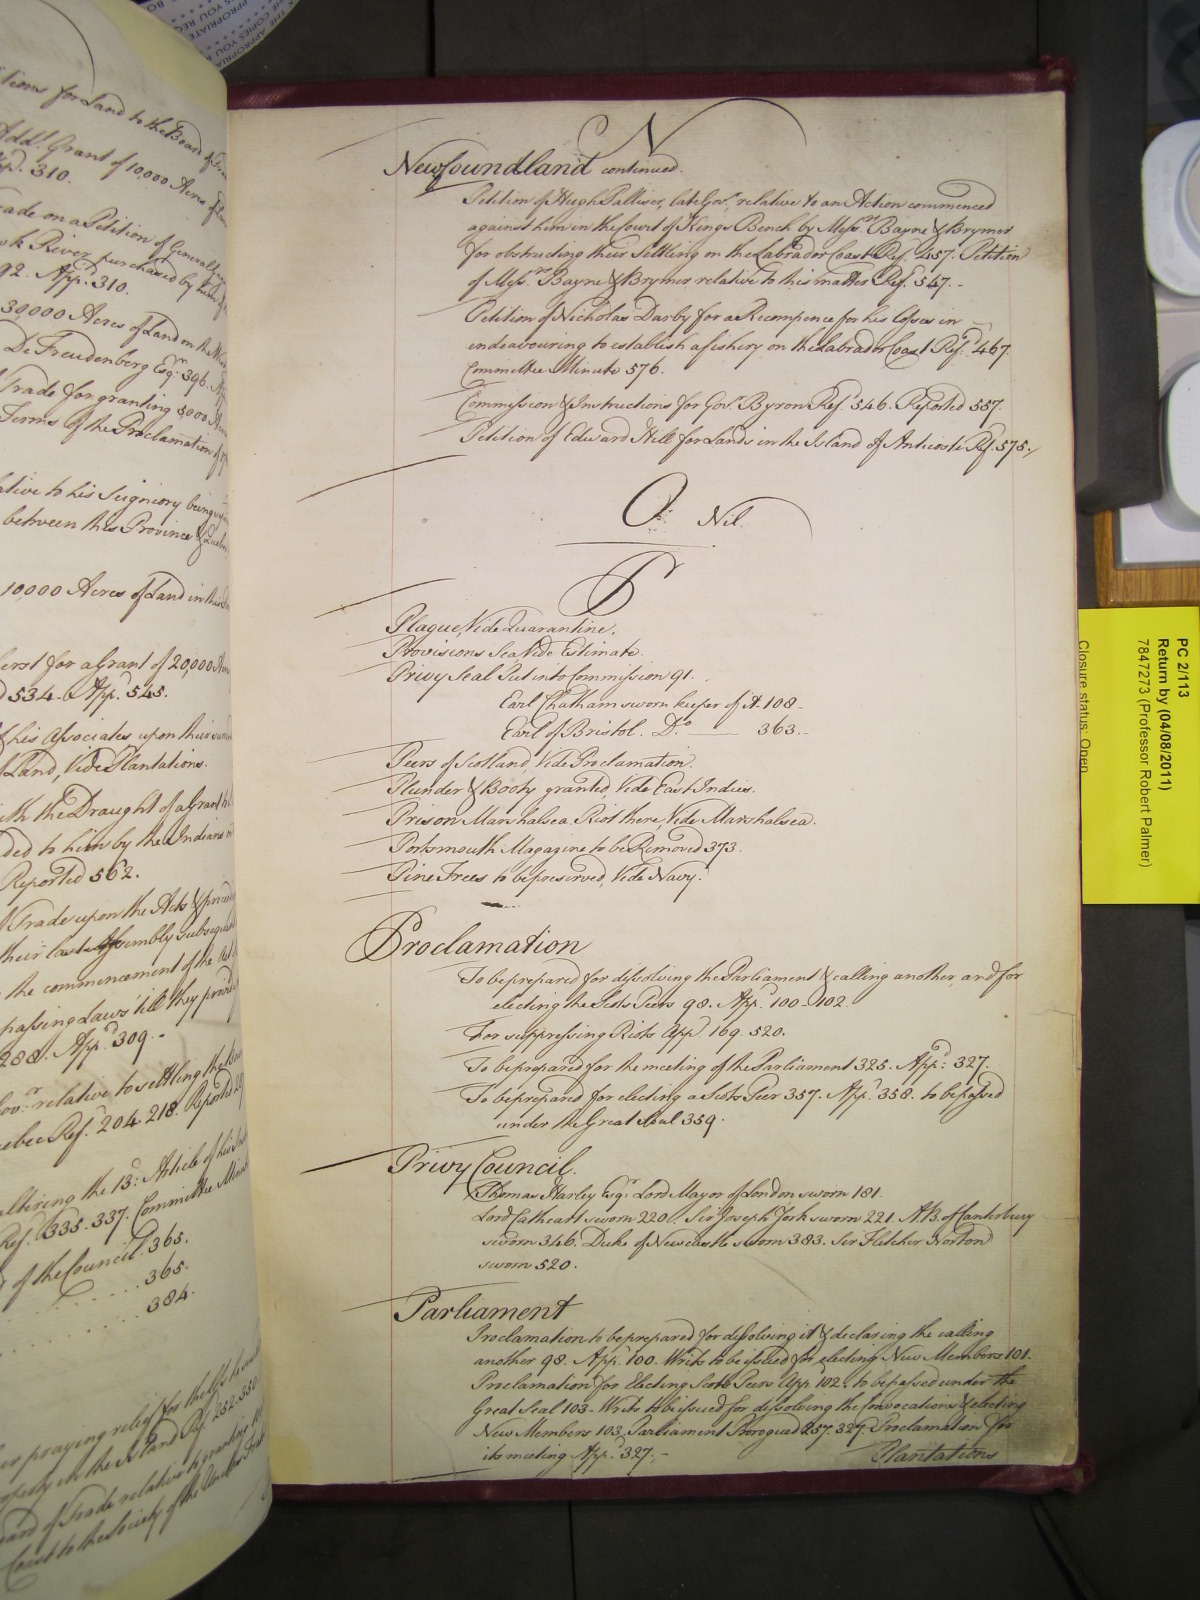 THE COPIES YOU REQ
APPROPRIATE BO
THE APPROPRIA
tions for Land to the Board of
Add.l Grant of 10,000 Acres of
App.d 310.
rade on a Petition of General
River purchased by
92. App.d 310.
30,000 Acres of Land on the
De Freudenberg Esq.r 396.
Trade for granting 5000
Terms of the Proclamation of
ative to his Seigniory being
between this Province & Quebec
10,000 Acres of Land in the
erst for a Grant of 20,000
534. App.d 545.
& his Associates upon their
Land, Vide Plantations.
ith the Draught of a Grant
ded to him by the Indians
Reported 562.
Trade upon the Acts &
their last Assembly
the commencement of the
passing Laws till they
288. App.d 309.-
Gov.r relative to settling the
uebec Ref.d 204. 218. Reported
altering the 13: Article of his
Ref.d 335. 337. Committee
of the Council 365.
365.
384.
praying relief for
in the Island Ref. 252.
oard of Trade relative to
Coast to the Society of the
N
Newfoundland continued.
Petition of Hugh Palliser, late Gov.r, relative to an Action commenced
against him in the Court of Kings Bench by Mess.rs Bayne & Brymer
for obstructing their Settling on the Labrador Coast Ref.d 457. Petition
of Mess.rs Bayne & Brymer relative to this matter Ref.d 547.-
Petition of Nicholas Darby for a Recompence for his losses in
endeavouring to establish a fishery on the Labrador Coast Ref.d 467
Committee Minute 576.
Commission & Instructions for Gov.r Byron Ref.d 546. Reported 557.
Petition of Edward Hill for Lands in the Island of Anticosti Ref.d 575.
O Nil.
P
Plague, Vide Quarantine.
Provisions Sea, Vide Estimate.
Privy Seal Put into Commission 91.
Earl Chatham sworn keeper of it 108-
Earl of Bristol. D.o 363.-
Peers of Scotland, Vide Proclamation.
Plunder & Booty granted, Vide East Indies.
Prison Marshalsea Riot there, Vide Marshalsea.
Portsmouth Magazine to be Removed 373.
Pine Trees to be preserved, Vide Navy.
Proclamation
To be prepared for dissolving the Parliament & calling another, and for
electing the Scots Peers 98. App.d 100-102.
For suppressing Riots App.d 169. 520.
To be prepared for the meeting of the Parliament 325. App.d 327.
To be prepared for electing a Scots Peer 357. App.d 358. to be passed
under the Great Seal 359.
Privy Council.
Thomas Harley Esq.r Lord Mayor of London sworn 181.
Lord Cathcart sworn 220. Sir Joseph York sworn 221. A.B. of Canterbury
sworn 346. Duke of Newcastle sworn 383. Sir Fletcher Norton
sworn 520.
Parliament
Proclamation to be prepared for dissolving it & declaring the calling
another 98. App.d 100. Writs to be issued for electing New Members 101.
Proclamation for Electing Scots Peers App.d 102. to be passed under the
Great Seal 103- Writs to be issued for dissolving the Convocations & electing
New Members 103. Parliament Prorogued 257. 327. Proclamation for
its meeting App.d 327.-
Plantations
PC 2/113
Return by (04/08/2011)
7847273 (Professor Robert Palmer)
Closure status: Open